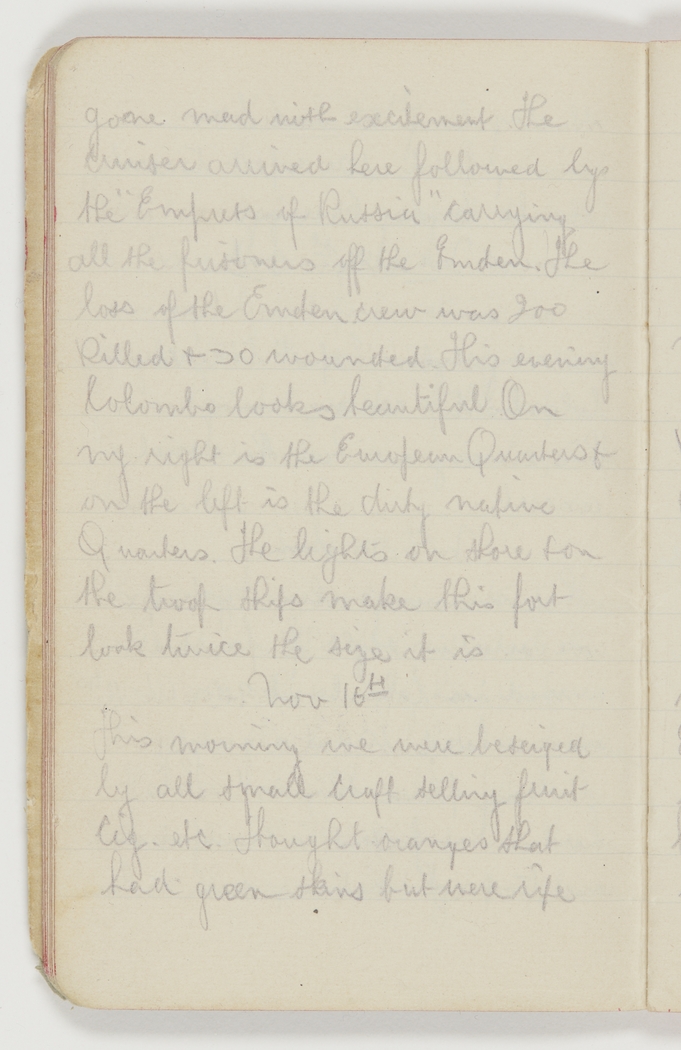 gone mad with excitement The
cruiser arrived here followed by
the "Empress of Russia" carrying
all the prisoners off the Emden. The
loss of the Emden crew was 200
killed + 30 wounded. This evening
Colombo looks beautiful On
my right is the European Quarters &
on the left is the dirty native
Quarters. The lights on shore & on
the troop ships make this port
look twice the size it is
Nov 16th
This morning we were beseiged
by all small craft selling fruit
Cig. etc. I bought oranges that
had green skins but were ripe